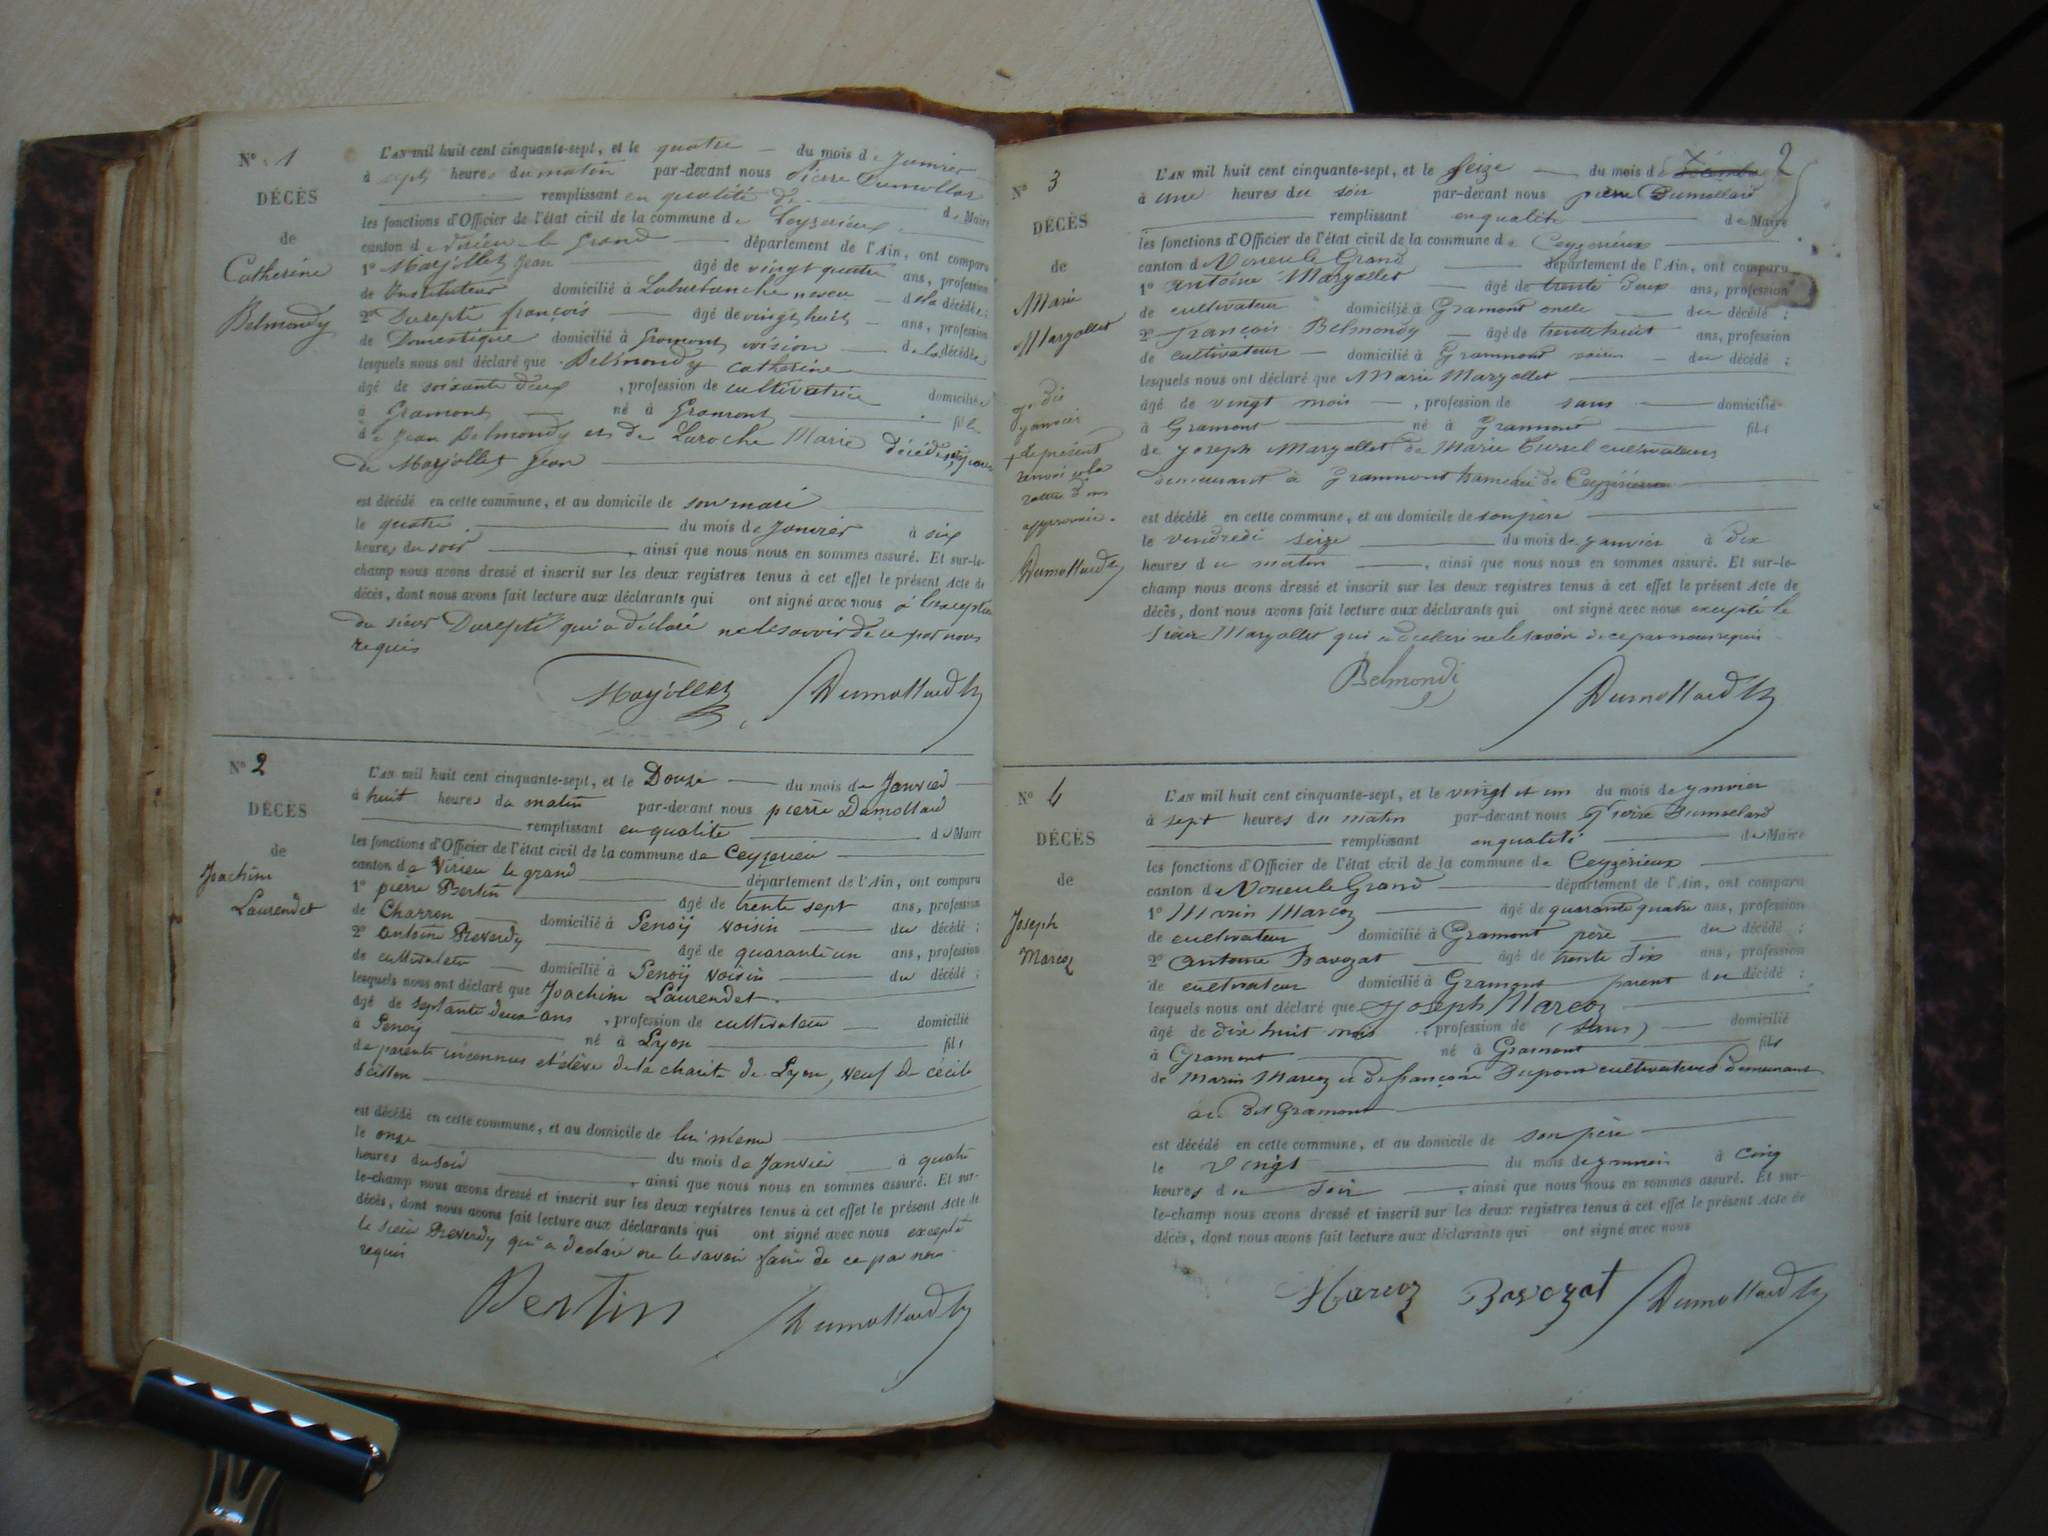 N° 1
DÉCÈS
de
Catherine
Belmondy
L'AN mil huit cent cinquante-sept, et le quatre du mois de Janvier
à sept heures du matin par-devant nous Pierre Dumollard
remplissant en qualité de de Maire
les fonctions d'Officier de l'état civil de la commune de Ceyzerieux
canton de Virieu le Grand département de l'Ain, ont comparu
1° Marjollet Jean âgé de vingt quatre ans, profession
de Instituteur domicilié à neveu de la décédée;
2° Durepte françois âgé de vingt huit ans, profession
de Domestique domicilié à Gramont voision de la décédée
lesquels nous ont déclaré que Belmondy catherine
âgé de soixante deux, profession de cultivatrice domiciliée
à Gramont né à Gramont fille
de Jean Belmondy et de Laroche Marie décédés,
de Marjollet Jean
est décédé en cette commune, et au domicile de son mari
le quatre du mois de Janvier à six
heures du soir, ainsi que nous nous en sommes assuré. Et sur-le-
champ nous avons dressé et inscrit sur les deux registres tenus à cet effet le présent Acte de
décès, dont nous avons fait lecture aux déclarants qui ont signé avec nous à l'exception
du sieur Durepte qui a déclaré ne le savoir de ce par nous
requis
Marjollet Dumollard
N° 2
DÉCÈS
de
Joachim
Laurendet
L'AN mil huit cent cinquante-sept, et le Douze du mois de Janvier
à huit heures du matin par-devant nous pierre Dumollard
remplissant en qualité de Maire
les fonctions d'Officier de l'état civil de la commune de Ceyzerieu
canton de Virieu le grand département de l'Ain, ont comparu
1° pierre Bertin âgé de trente sept ans, profession
de Charron domicilié à Senoÿ voisin du décédé;
2° antoine Reverdy âgé de quarante un ans, profession
de cultivateur domicilié à Senoÿ voisin du décédé;
lesquels nous ont déclaré que Joachim Laurendet.
âgé de septante deux ans, profession de cultivateur domicilié
à Senoÿ né à Lyon fils
de parents inconnus et élève de la charité de Lyon, veuf de cécile
est décédé en cette commune, et au domicile de lui même
le onze du mois de Janvier à quatre
heures du soir, ainsi que nous nous en sommes assuré. Et sur-
le-champ nous avons dressé et inscrit sur les deux registres tenus à cet effet le présent Acte de
décès, dont nous avons fait lecture aux déclarants qui ont signé avec nous excepté
le sieur Reverdy qui a déclaré ne le savoir faire de ce par nous
requis
Bertin Dumollard
2
N° 3
DÉCÈS
de
Marie
Maryollet
dix
janvier
le présent
renvoi et la
rature d'un
approuvée.
Dumollard
L'AN mil huit cent cinquante-sept, et le seize du mois de
à une heures du soir par-devant nous pierre Dumollard
remplissant en qualité de Maire
les fonctions d'Officier de l'état civil de la commune de Ceyzerieux
canton de Virieu le Grand département de l'Ain, ont comparu
1° antoine Maryollet âgé de trente deux ans, profession
de cultivateur domicilié à Gramont oncle du décédé;
2° françois Belmondy âgé de trente huit ans, profession
de cultivateur domicilié à Grammont voisin du décédé;
lesquels nous ont déclaré que Marie Maryollet
âgé de vingt mois, profession de sans domicilié
à Gramont né à Grammont fils
de Joseph Maryollet de Marie cultivateurs
demeurant à Grammont hameau de Ceyzérieux
est décédé en cette commune, et au domicile de son père
le vendredi seize du mois de janvier à dix
heures du matin, ainsi que nous nous en sommes assuré. Et sur-le-
champ nous avons dressé et inscrit sur les deux registres tenus à cet effet le présent Acte de
décès, dont nous avons fait lecture aux déclarants qui ont signé avec nous excepté le
sieur Maryollet qui a déclaré ne le savoir de ce par nous requis
Belmondi Dumollard
N° 4
DÉCÈS
de
Joseph
Marcoz
L'AN mil huit cent cinquante-sept, et le vingt et un du mois de janvier
à sept heures du matin par-devant nous Pierre Dumollard
remplissant en qualité de Maire
les fonctions d'Officier de l'état civil de la commune de Ceyzérieux
canton de Virieu le Grand département de l'Ain, ont comparu
1° Marin Marcoz âgé de quarante quatre ans, profession
de cultivateur domicilié à Gramont père du décédé;
2° antoine Bavozat âgé de trente six ans, profession
de cultivateur domicilié à Gramont parent du décédé;
lesquels nous ont déclaré que Joseph Marcoz
âgé de dix huit mois, profession de (sans) domicilié
à Gramont né à Gramont fils
de Marin Marcoz et de françoise Dupont cultivateurs demeurant
au dit Gramont
est décédé en cette commune, et au domicile de son père
le vingt du mois de janvier à cinq
heures du soir, ainsi que nous nous en sommes assuré. Et sur-
le-champ nous avons dressé et inscrit sur les deux registres tenus à cet effet le présent Acte de
décès, dont nous avons fait lecture aux déclarants qui ont signé avec nous
Marcoz Bavozat Dumollard